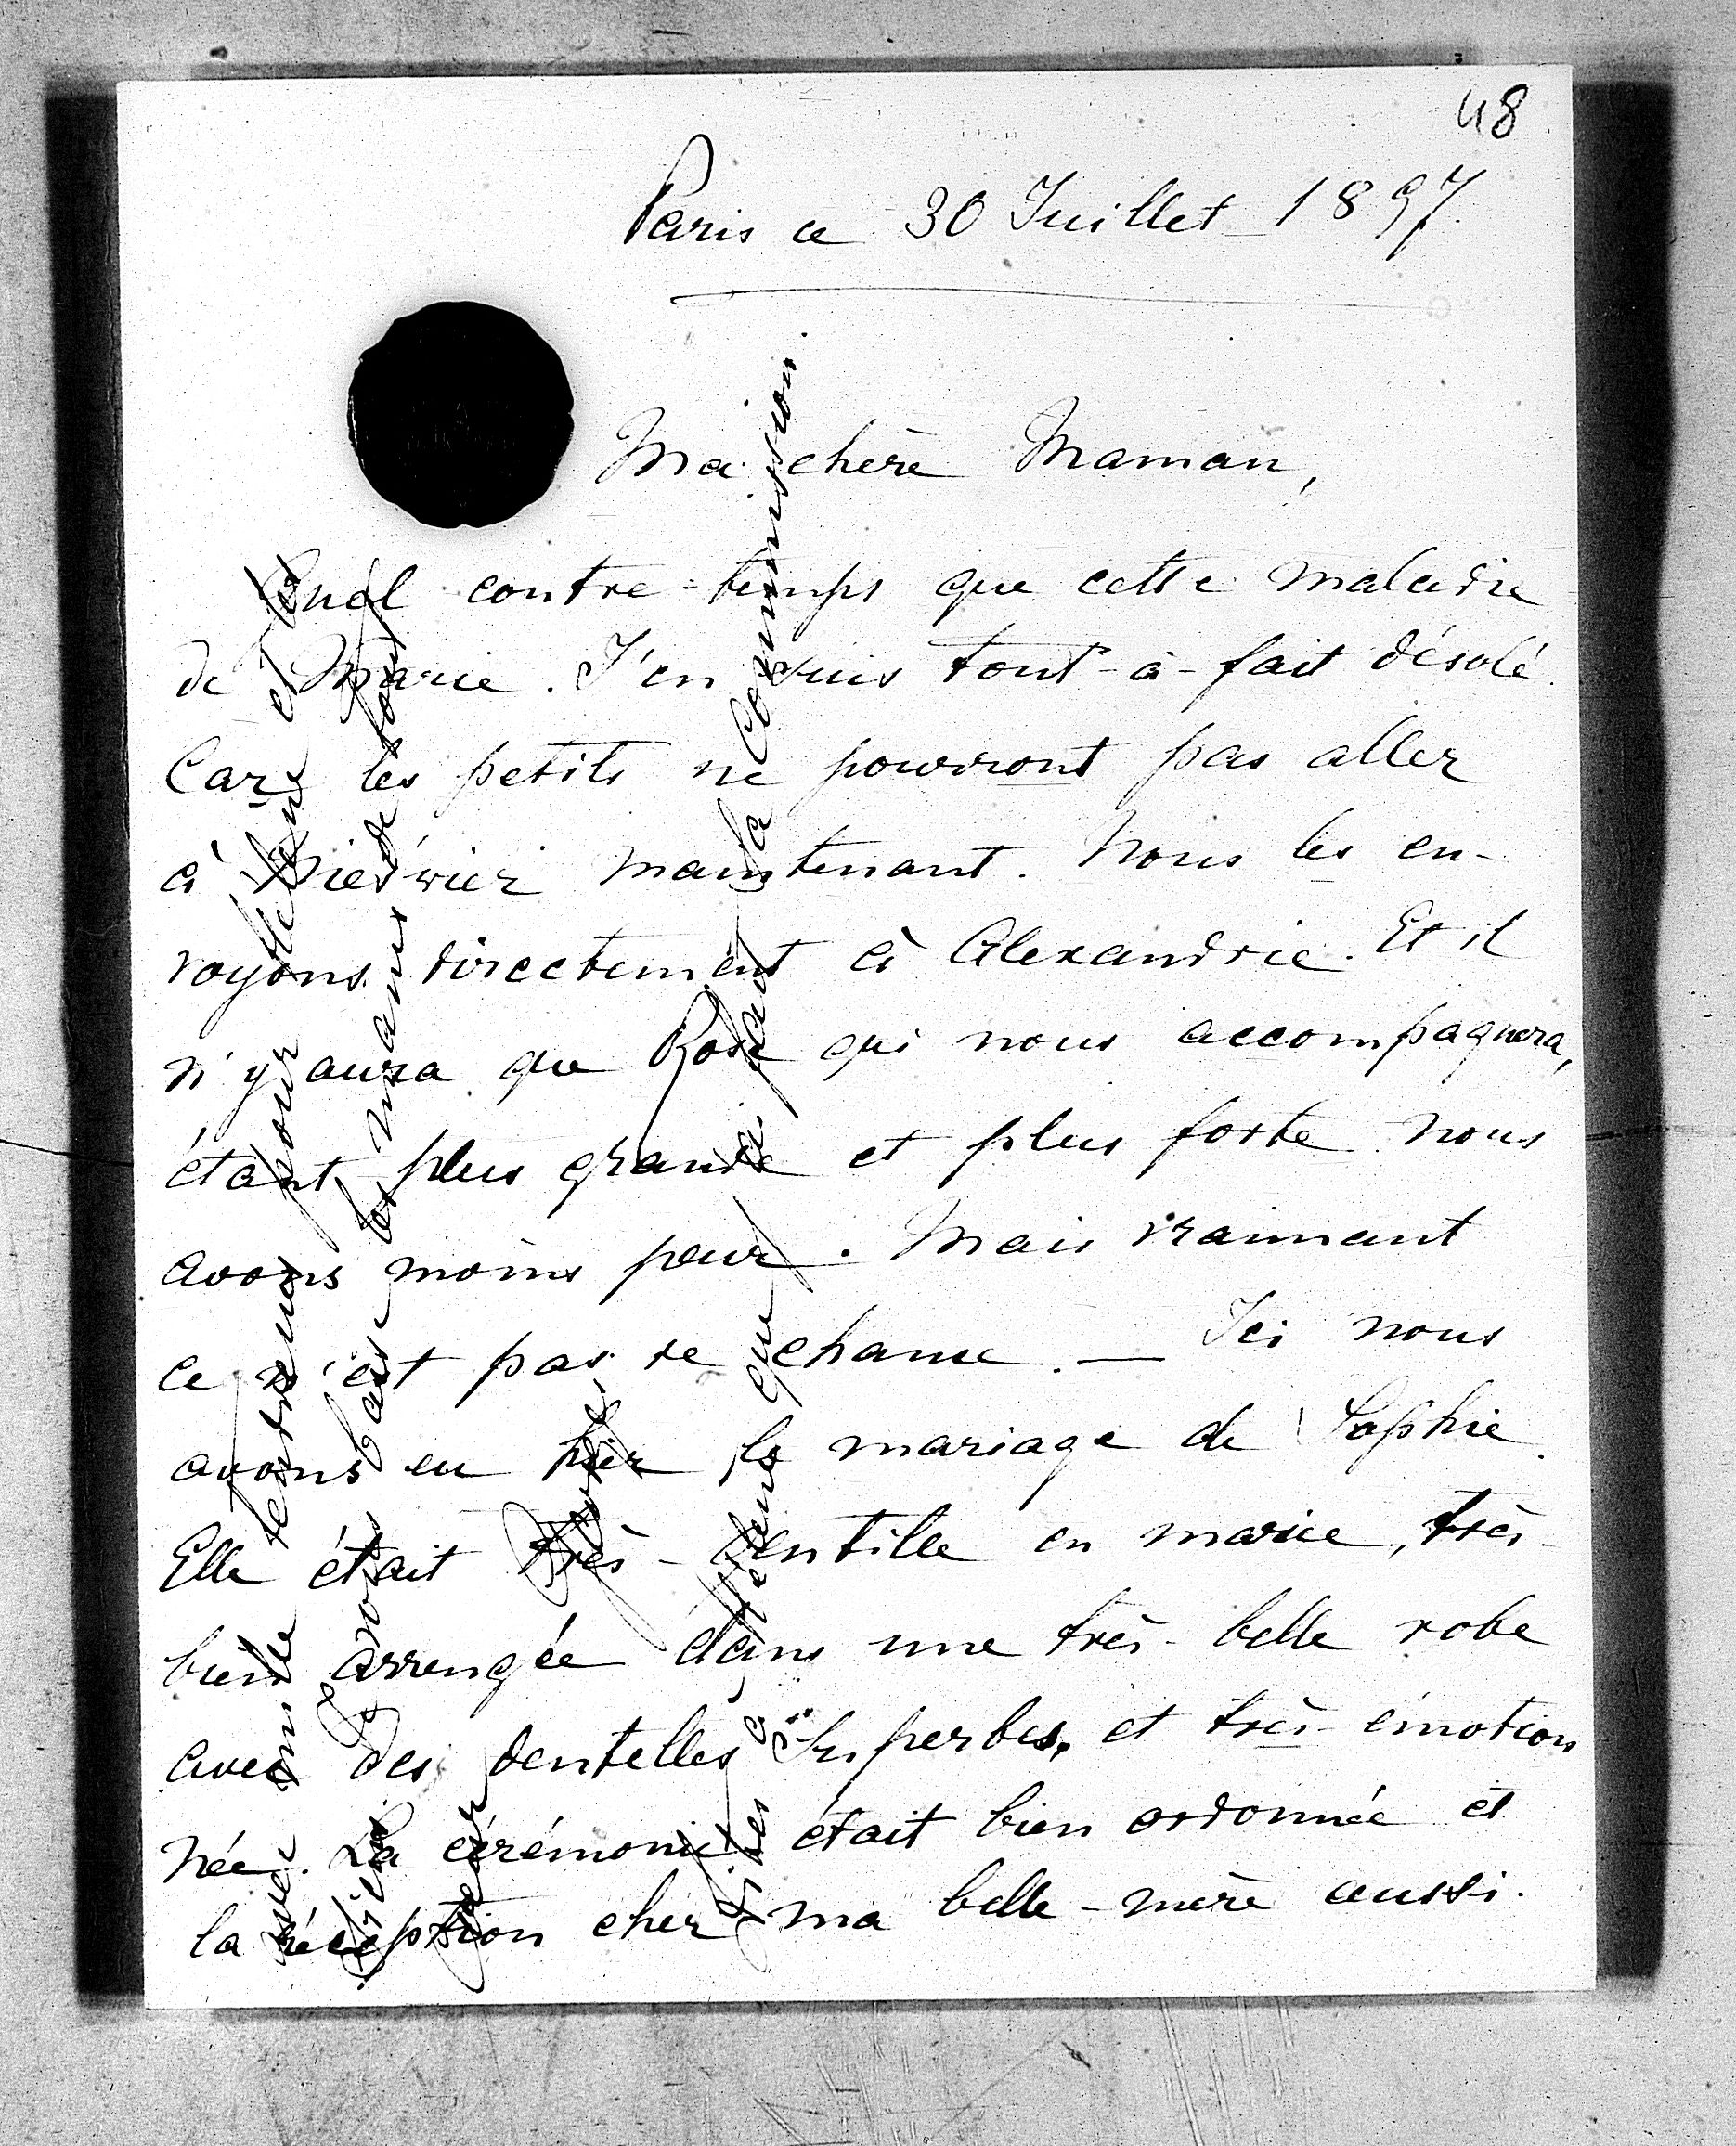 48
Paris ce 30 Juillet 1897.
Ma chère Maman,
Quel contre-temps que cette maladie
de Marie. J'en suis tout-à-fait désolé.
Car les petits ne pourront pas aller
à maintenant. Nous les en-
voyons directement à Alexandrie. Et il
n'y aura que Rose qui nous accompagnera,
étant plus grande et plus forte nous
avons moins peur. Mais vraimant
ce n'est pas de chance. — Ici nous
avons eu hier le mariage de Sophie.
Elle était très-gentille en mariée, très-
bien arrengée dans une très-belle robe
avec des dentelles superbes, et très-émotion
née. La cérémonie était bien ordonnée et
la réception chez ma belle-mère aussi.
avec mille tendresses pour et
baise les mains de tout
Dites à que fait la Commission.